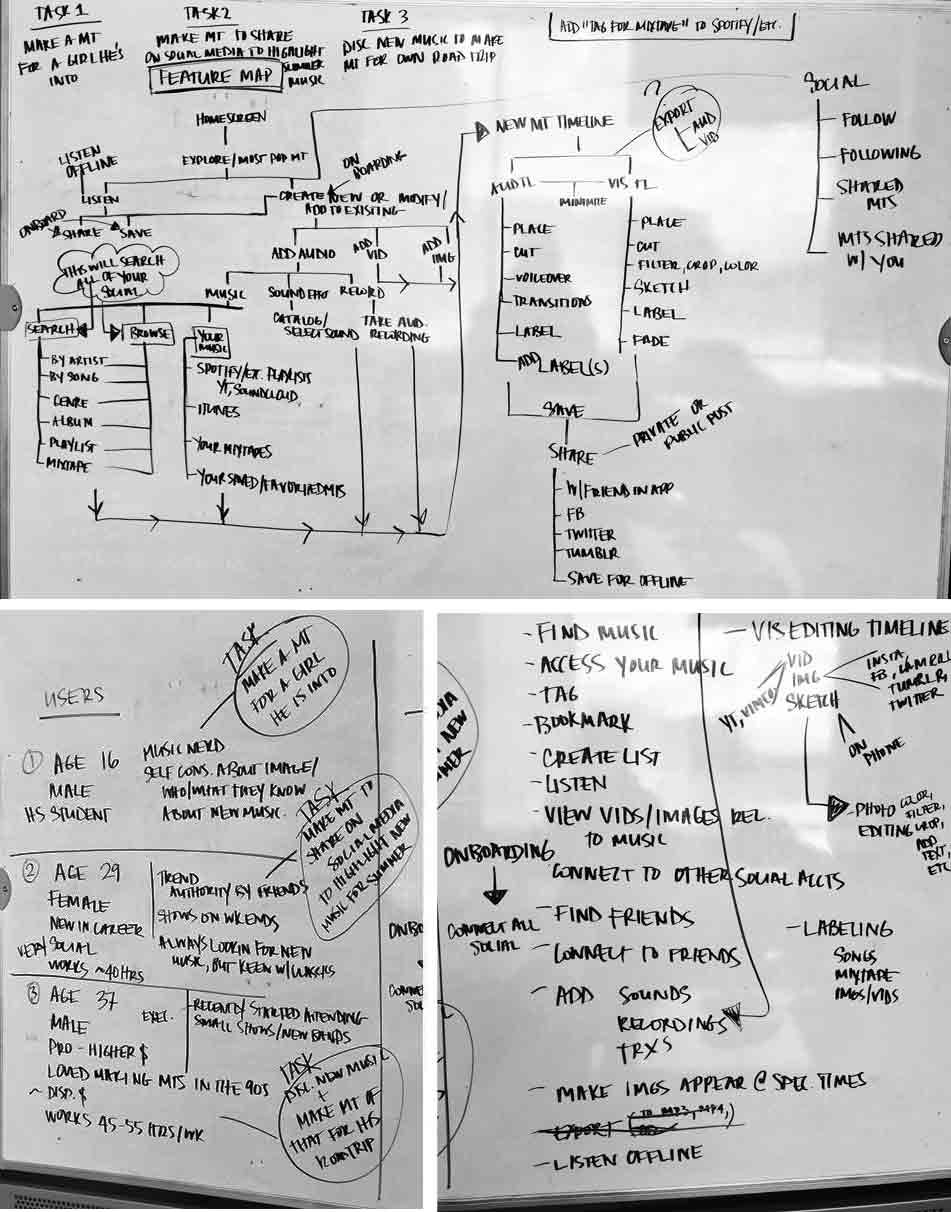 TASK 1
MAKE A MT
FOR A GIRL HE'S
INTO
TASK 2
MAKE MT TO SHARE
ON SOCIAL MEDIA TO HIGHLIGHT
SUMMER
MUSIC
TASK 3
DISC NEW MUSIC TO MAKE
MT FOR OWN ROAD TRIP
ADD "TAG FOR MIXTAPE" TO SPOTIFY/ETC.
FEATURE MAP
HOMESCREEN
EXPLORE/MOST POP MT
LISTEN
OFFLINE
LISTEN
ONBOARD
SHARE
SAVE
ON
BOARDING
CREATE NEW OR MODIFY/
ADD TO EXISTING
ADD AUDIO
ADD
VID
ADD
IMG
THIS WILL SEARCH
ALL OF YOUR
SOCIAL
MUSIC
SOUND EFFO
RECORD
CATALOG/
SELECT SOUND
TAKE AUD.
RECORDING
SEARCH
BROWSE
YOUR
MUSIC
BY ARTIST
BY SONG
GENRE
ALBUM
PLAYLIST
MIXTAPE
SPOTIFY/ETC. PLAYLISTS
YT, SOUNDCLOUD
ITUNES
YOUR MIXTAPES
YOUR SAVED/FAVORITED MTS
NEW MT TIMELINE
?
EXPORT
AUD
VIB
AUD TL
VIS TL
MINIMIZE
PLACE
CUT
VOICEOVER
TRANSITIONS
LABEL
ADD LABEL(S)
PLACE
CUT
FILTER, CROP, COLOR
SKETCH
LABEL
FADE
SAVE
SHARE
PRIVATE OR
PUBLIC POST
W/FRIEND IN APP
FB
TWITTER
TUMBLR
SAVE FOR OFFLINE
SOCIAL
FOLLOW
FOLLOWING
SHARED
MTS
MTS SHARED
W/ YOU
USERS
TASK
MAKE A MT
FOR A GIRL
HE IS INTO
1 AGE 16
MALE
HS STUDENT
MUSIC NERD
SELF CONS. ABOUT IMAGE/
WHO/WHAT THEY KNOW
ABOUT NEW MUSIC.
TASK
MAKE MT TO
SHARE ON
SOCIAL MEDIA
TO HIGHLIGHT NEW
MUSIC FOR SUMMER
2 AGE 29
FEMALE
NEW IN CAREER
VERY SOCIAL
WORKS ~40HRS
TREND
AUTHORITY BY FRIENDS
SHOWS ON WKENDS
ALWAYS LOOKIN FOR NEW
MUSIC, BUT KEEN W/CLASSICS
3 AGE 37
MALE
EXEC.
PRO - HIGHER $
LOVED MAKING MTS IN THE 90S
~ DISP. $
WORKS 45-55 HRS/WK
- RECENTLY STARTED ATTENDING
SMALL SHOWS/NEW BANDS
TASK
DISC. NEW MUSIC
+
MAKE MT OF
THAT FOR HIS
ROADTRIP
ONBO
CONNE
SOC
- FIND MUSIC
- ACCESS YOUR MUSIC
- TAG
- BOOKMARK
- CREATE LIST
- LISTEN
- VIEW VIDS/IMAGES REL.
TO MUSIC
ONBOARDING
CONNECT ALL
SOCIAL
- CONNECT TO OTHER SOCIAL ACCTS
- FIND FRIENDS
- CONNECT TO FRIENDS
- ADD SOUNDS
RECORDINGS
TRXS
- MAKE IMGS APPEAR @ SPEC. TIMES
- EXPORT (TO MP3, MP4,)
- LISTEN OFFLINE
- VIS EDITING TIMELINE
VID
IMG
SKETCH
YT, VIMEO
INSTA,
FB, CAM ROLL
TUMBLR,
TWITTER
ON
PHONE
- PHOTO
EDITING
COLOR,
FILTER,
CROP,
ADD
TEXT,
ETC
- LABELING
SONGS
MIXTAPE
IMGS/VIDS